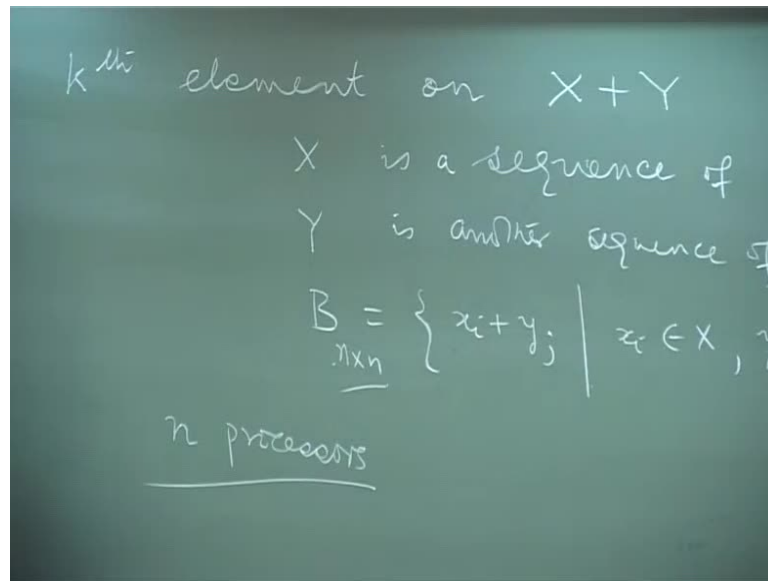 kth element on X + Y
X is a sequence of
Y is another sequence of
B = { xi + yj | xi ∈ X ,
n×n
n processors